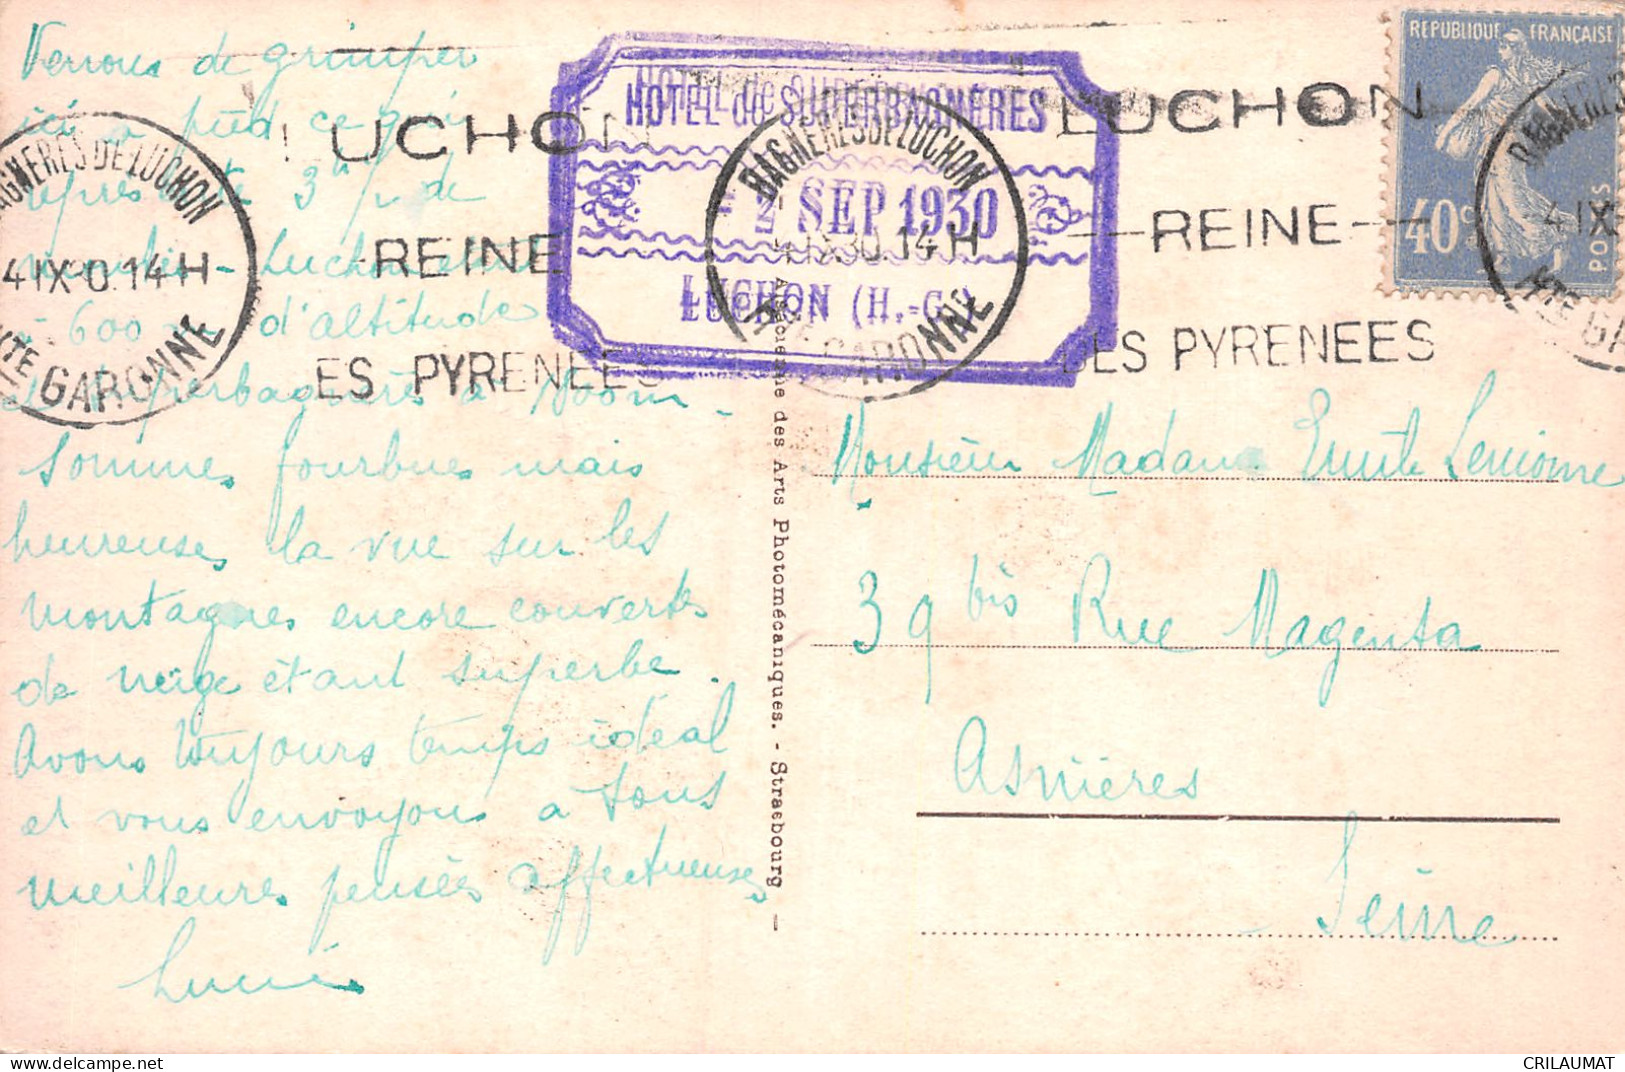 Venons de grimper
ici à pied ce qui
représente 3h ½ de
marche - Luchon étant
à 600 m d'altitude
et Superbagnères à 1800m -
Sommes fourbues mais
heureuses la vue sur les
montagnes encore couvertes
de neige étant superbe.
Avons toujours temps idéal
et vous envoyons à tous
meilleures pensées affectueuses
Lucie
HOTEL de SUPERBAGNÈRES
2 SEP 1930
LUCHON (H.-G.)
BAGNERES DE LUCHON
4 IX 30 14 H
Hte GARONNE
LUCHON
REINE
DES PYRENEES
AGNERES DE LUCHON
4 IX 0 14 H
TE GARONNE
UCHON
REINE
ES PYRENEES
REPUBLIQUE FRANÇAISE
40c
POSTES
BAGNERES
4 IX
Hte GA
Alsacienne des Arts Photomécaniques. - Strasbourg
Monsieur Madame Emile Lemoine
39 bis Rue Magenta
Asnières
Seine
CRILAUMAT